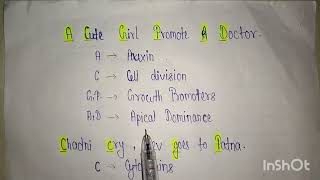 A Cute Girl Promote A Doctor.
A → Auxin
C → Cell division
G.P → Growth Promoters
A.D → Apical Dominance
Chadni Cry, Dev goes to Patna.
C → Cytokinins
InShOt